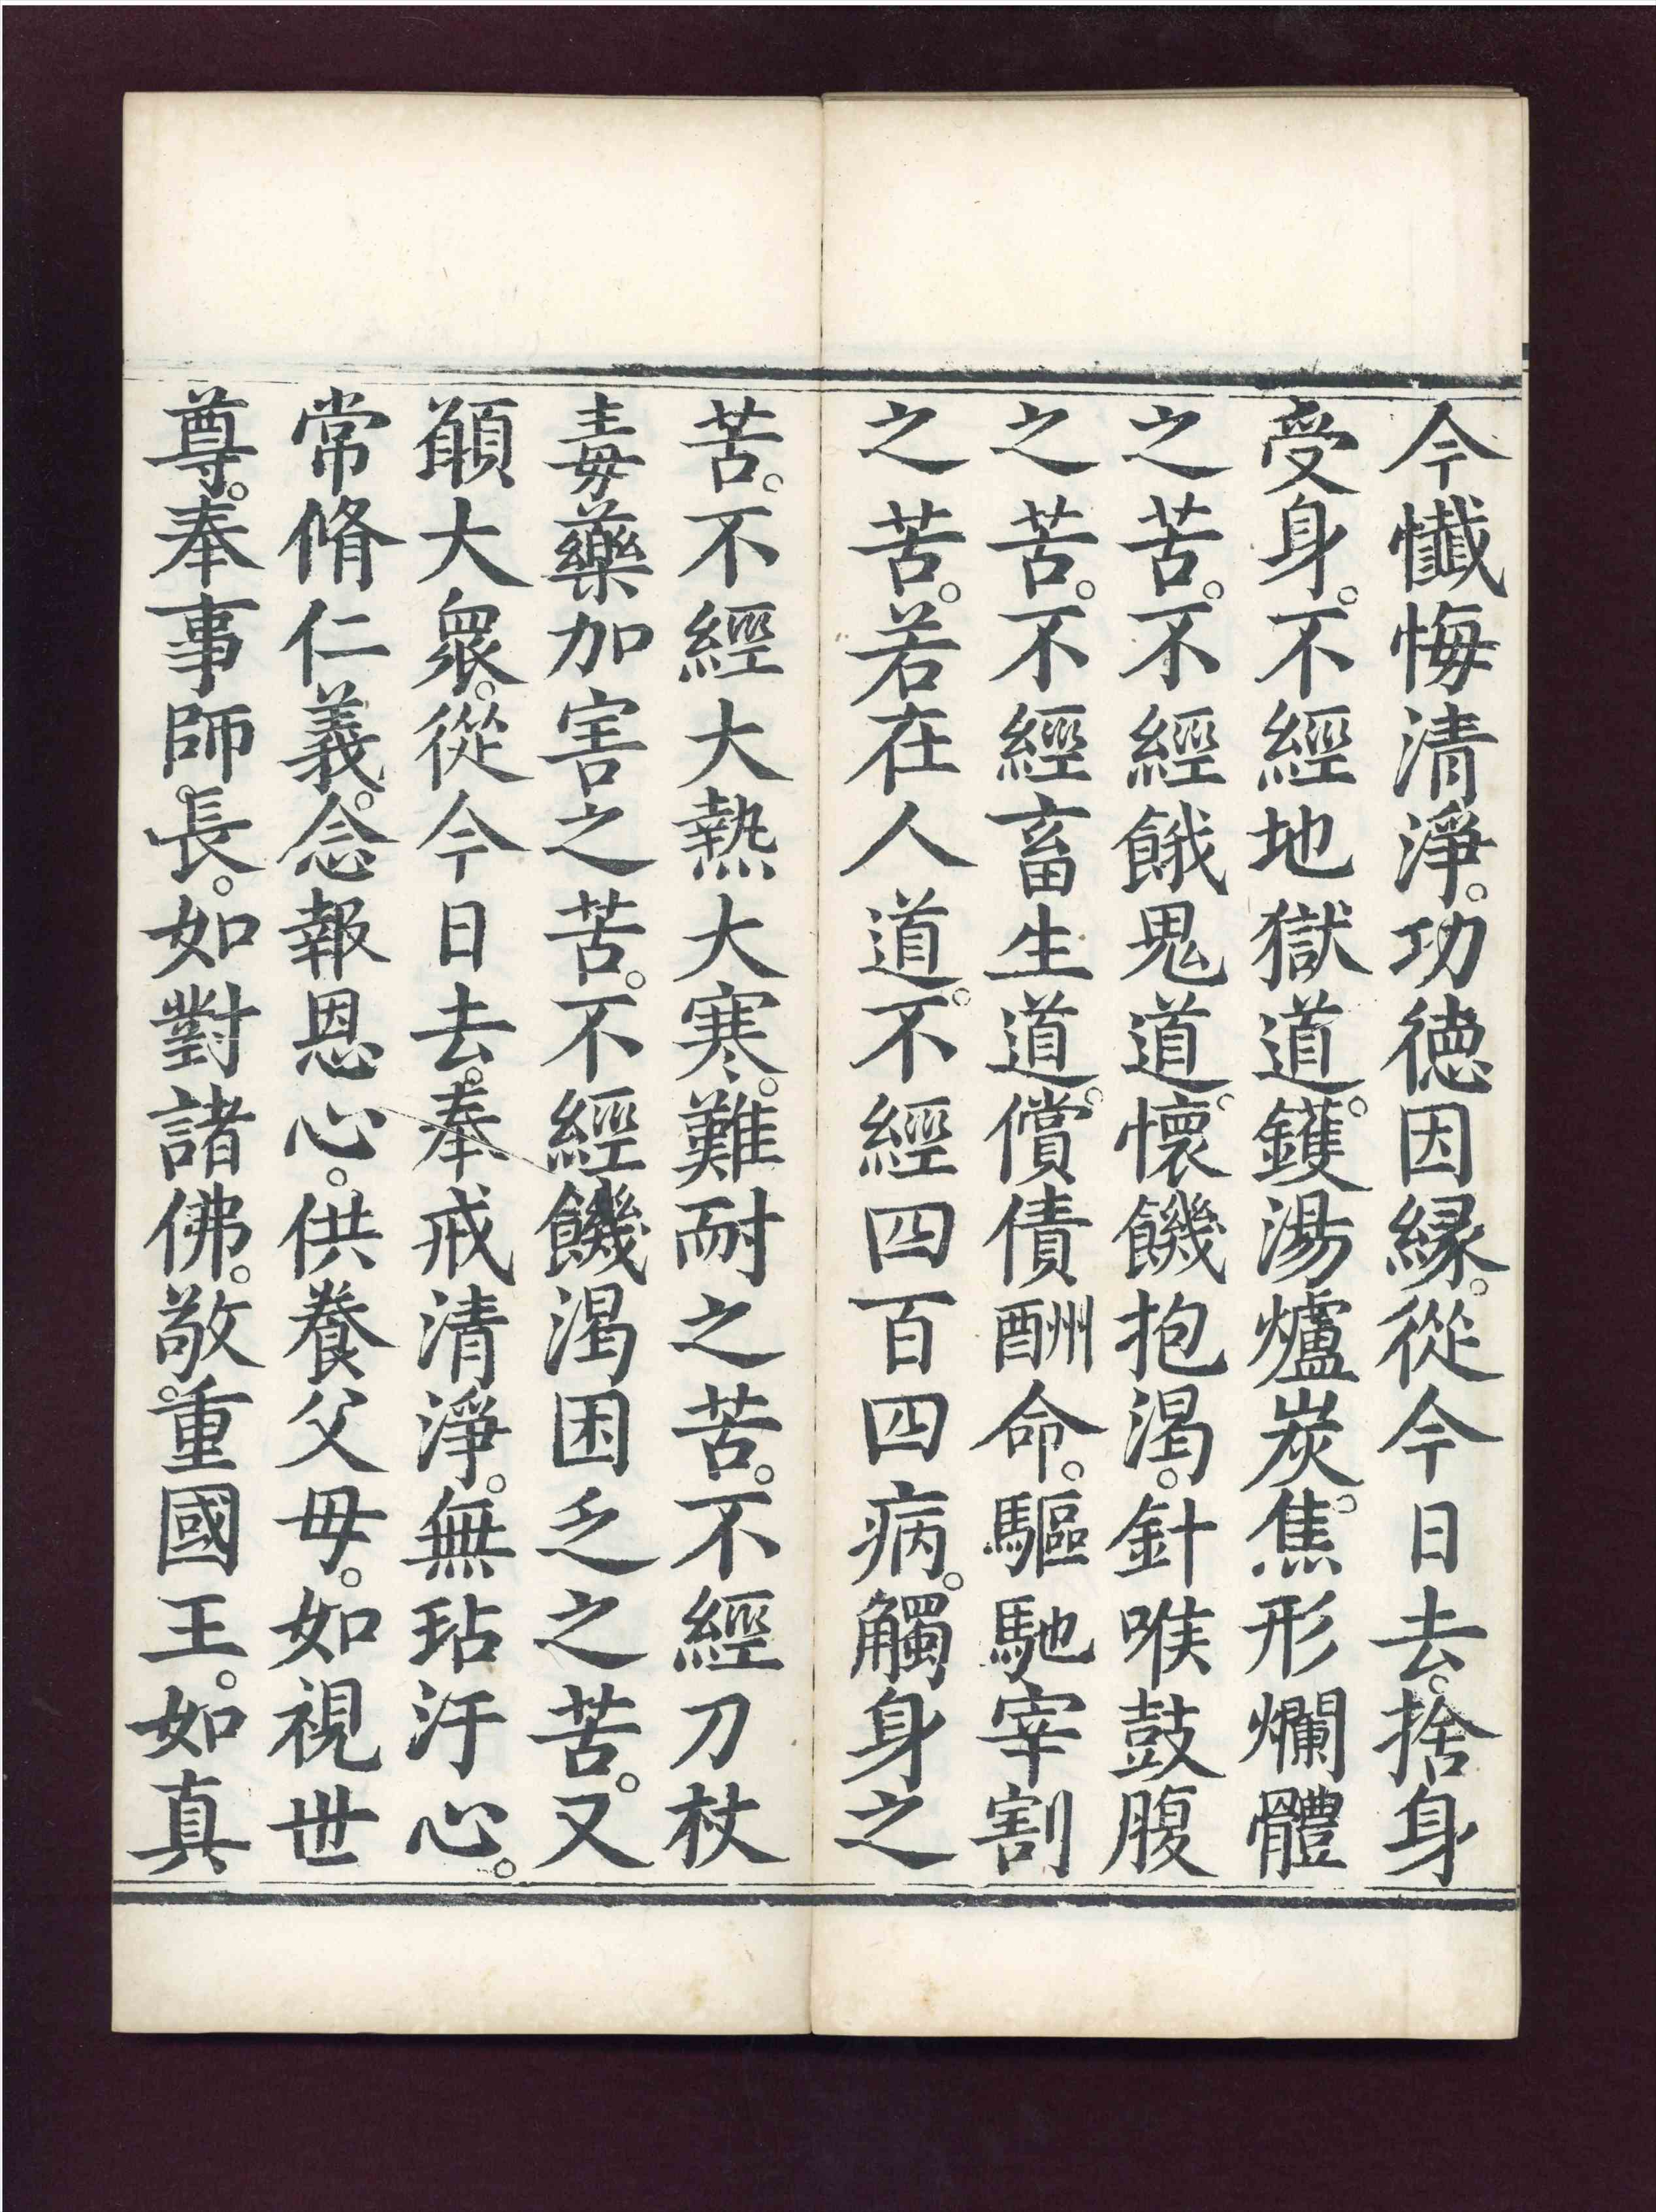 今懴悔清淨。功德因縁。從今日去。捨身
受身。不經地獄道。鑊湯爐炭。焦形爛體
之苦。不經餓鬼道。懷饑抱渴。針喉鼓腹
之苦。不經畜生道。償債酬命。驅馳宰割
之苦。若在人道。不經四百四病。觸身之
苦。不經大熱大寒。難耐之苦。不經刀杖
毒藥加害之苦。不經饑渴困乏之苦。又
願大衆。從今日去。奉戒清淨。無玷汙心。
常脩仁義。念報恩心。供養父母。如視世
尊。奉事師。長。如對諸佛。敬。重國王。如真